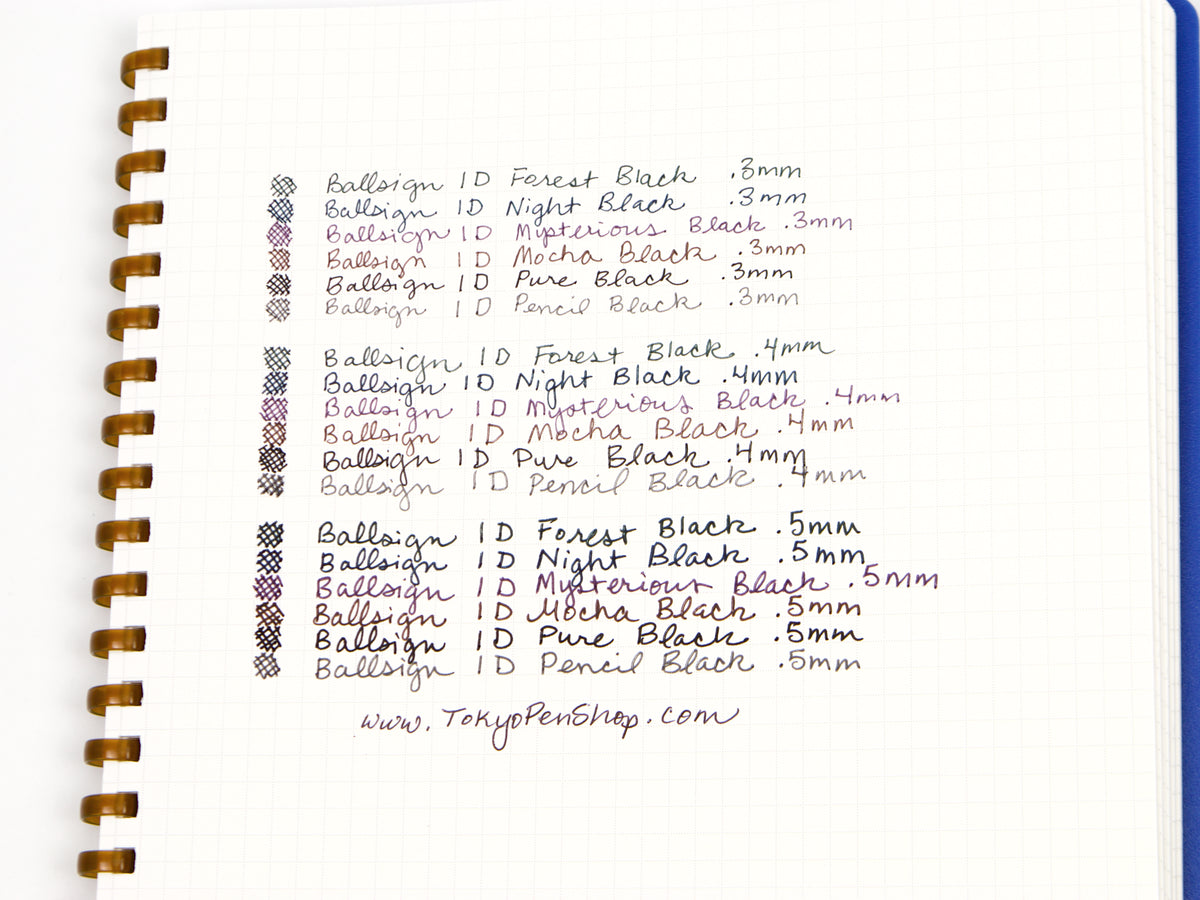 Ballsign 1D Forest Black .3mm
Ballsign 1D Night Black .3mm
Ballsign 1D Mysterious Black .3mm
Ballsign 1D Mocha Black .3mm
Ballsign 1D Pure Black .3mm
Ballsign 1D Pencil Black .3mm
Ballsign 1D Forest Black .4mm
Ballsign 1D Night Black .4mm
Ballsign 1D Mysterious Black .4mm
Ballsign 1D Mocha Black .4mm
Ballsign 1D Pure Black .4mm
Ballsign 1D Pencil Black .4mm
Ballsign 1D Forest Black .5mm
Ballsign 1D Night Black .5mm
Ballsign 1D Mysterious Black .5mm
Ballsign 1D Mocha Black .5mm
Ballsign 1D Pure Black .5mm
Ballsign 1D Pencil Black .5mm
www.TokyoPenShop.com